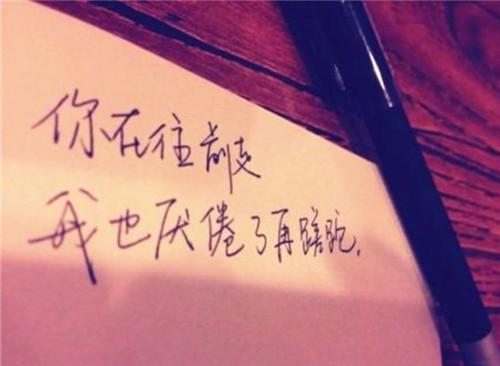 你在往前走
我也厌倦了再蹉跎.